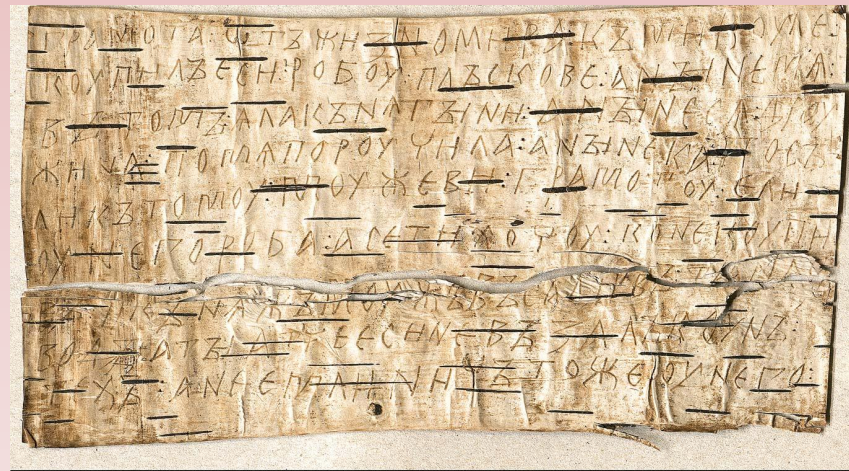 грамота : ѡтъ жизномира : къ микоуле :
коупилъ еси : робоу : плъскове : а ныне мѧ :
въ томъ : ѧла кънѧгыни : а ныне сѧ дроу
жина : по мѧ пороучила : а ныне ка : посъ
ли къ томоу : моужеви : грамотоу : е ли
оу него роба : а се ти хочоу : коне коупи
въ : и кънѧжъ моужъ въсадивъ : та на съ
водъ : а ты атче еси не възалъ коунъ
техъ : а не емли : ничъто же оу него :